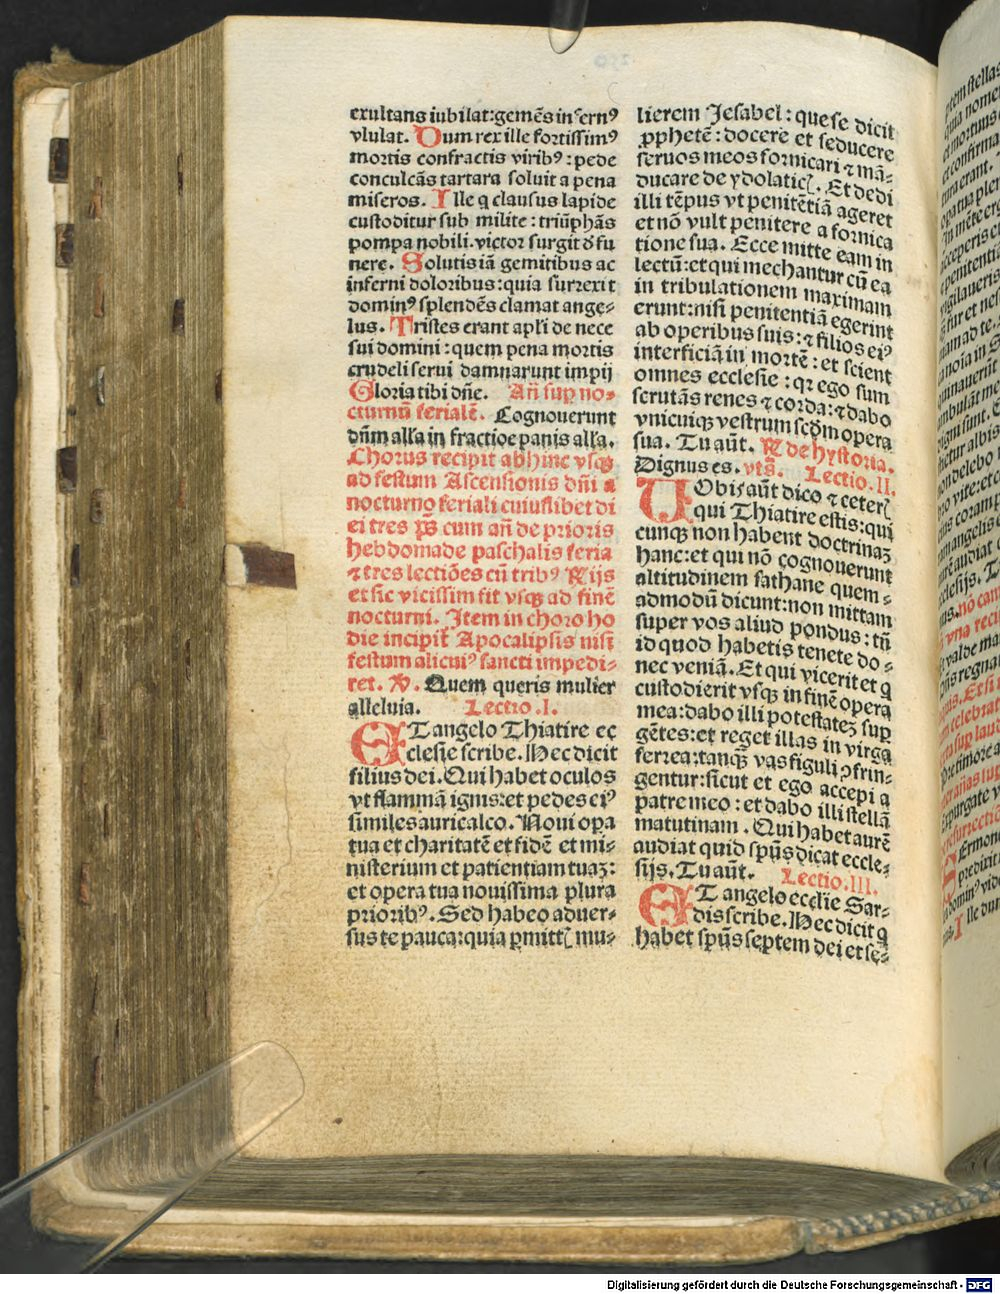 exultans iubilat:gemēs infernꝰ
vlulat. Dum rex ille fortissimꝰ
mortis confractis viribꝰ: pede
conculcās tartara soluit a pena
miseros. Ille q̄ clausus lapide
custoditur sub milite: triūphās
pompa nobili. victor surgit d̄ fu
nere. Solutis iā gemitibus ac
inferni doloribus: quia surrexit
dominꝰ splendēs clamat ange⸗
lus. Tristes erant apl̄i de nece
sui domini: quem pena mortis
crudeli serui damnarunt impij
Gloria tibi dn̄e. Añ sup no⸗
cturnū ferialē. Cognouerunt
dn̄m all̄a in fractiōe panis all̄a.
Chorus recipit abhinc vsqꝫ
ad festum Ascensionis dn̄i a
nocturno feriali cuiuslibet di
ei tres p̄s cum añ de prioris
hebdomade paschalis feria
⁊ tres lectiōes cū tribꝰ ℟ijs
et sic vicissim fit vsqꝫ ad finē
nocturni. Item in choro ho
die incipit̄ Apocalipsis nisi
festum alicuiꝰ sancti impedi⸗
ret. ℣. Quem queris mulier
alleluia. Lectio .I.
ET angelo Thiatire ec
clesie scribe. Hec dicit
filius dei. Qui habet oculos
vt flammā ignis:et pedes eiꝰ
similes auricalco. Noui oꝑa
tua et charitatē et fidē et mi⸗
nisterium et patientiam tuaꝫ:
et opera tua nouissima plura
prioribꝰ. Sed habeo aduer⸗
sus te pauca:quia ꝑmittꝭ mu⸗
lierem Jesabel: que se dicit
ꝓphetē: docere et seducere
seruos meos fornicari ⁊ mā⸗
ducare de ydolaticꝭ. Et dedi
illi tēpus vt penitētiā ageret
et nō vult penitere a fornica
tione sua. Ecce mitte eam in
lectū: et qui mechantur cū ea
in tribulationem maximam
erunt:nisi penitentiā egerint
ab operibus suis: ⁊ filios eiꝰ
interficiā in mortē: et scient
omnes ecclesie: qꝛ ego sum
scrutās renes ⁊ corda: ⁊ dabo
vnicuiqꝫ vestrum scd̄m opera
sua. Tu aūt. ℟ de hystoria.
Dignus es. vts̄. Lectio .II.
VObis aūt dico ⁊ ceterꝭ
qui Thiatire estis: qui
cunqꝫ non habent doctrinaꝫ
hanc: et qui nō cognouerunt
altitudinem sathane quem⸗
admodū dicunt:non mittam
super vos aliud pondus: tn̄
id quod habetis tenete do⸗
nec veniā. Et qui vicerit et q̄
custodierit vsqꝫ in finē opera
mea: dabo illi potestateꝫ sup
gētes: et reget illas in virga
ferrea: tanqꝫ vas figuli ꝯfrin⸗
gentur: sicut et ego accepi a
patre meo: et dabo illi stellā
matutinam. Qui habet aurē
audiat quid spūs dicat eccle⸗
sijs. Tu aūt. Lectio .III.
ET angelo eccl̄ie Sar⸗
dis scribe. Hec dicit q̄
habet spūs septem dei et sē⸗
Digitalisierung gefördert durch die Deutsche Forschungsgemeinschaft - DFG